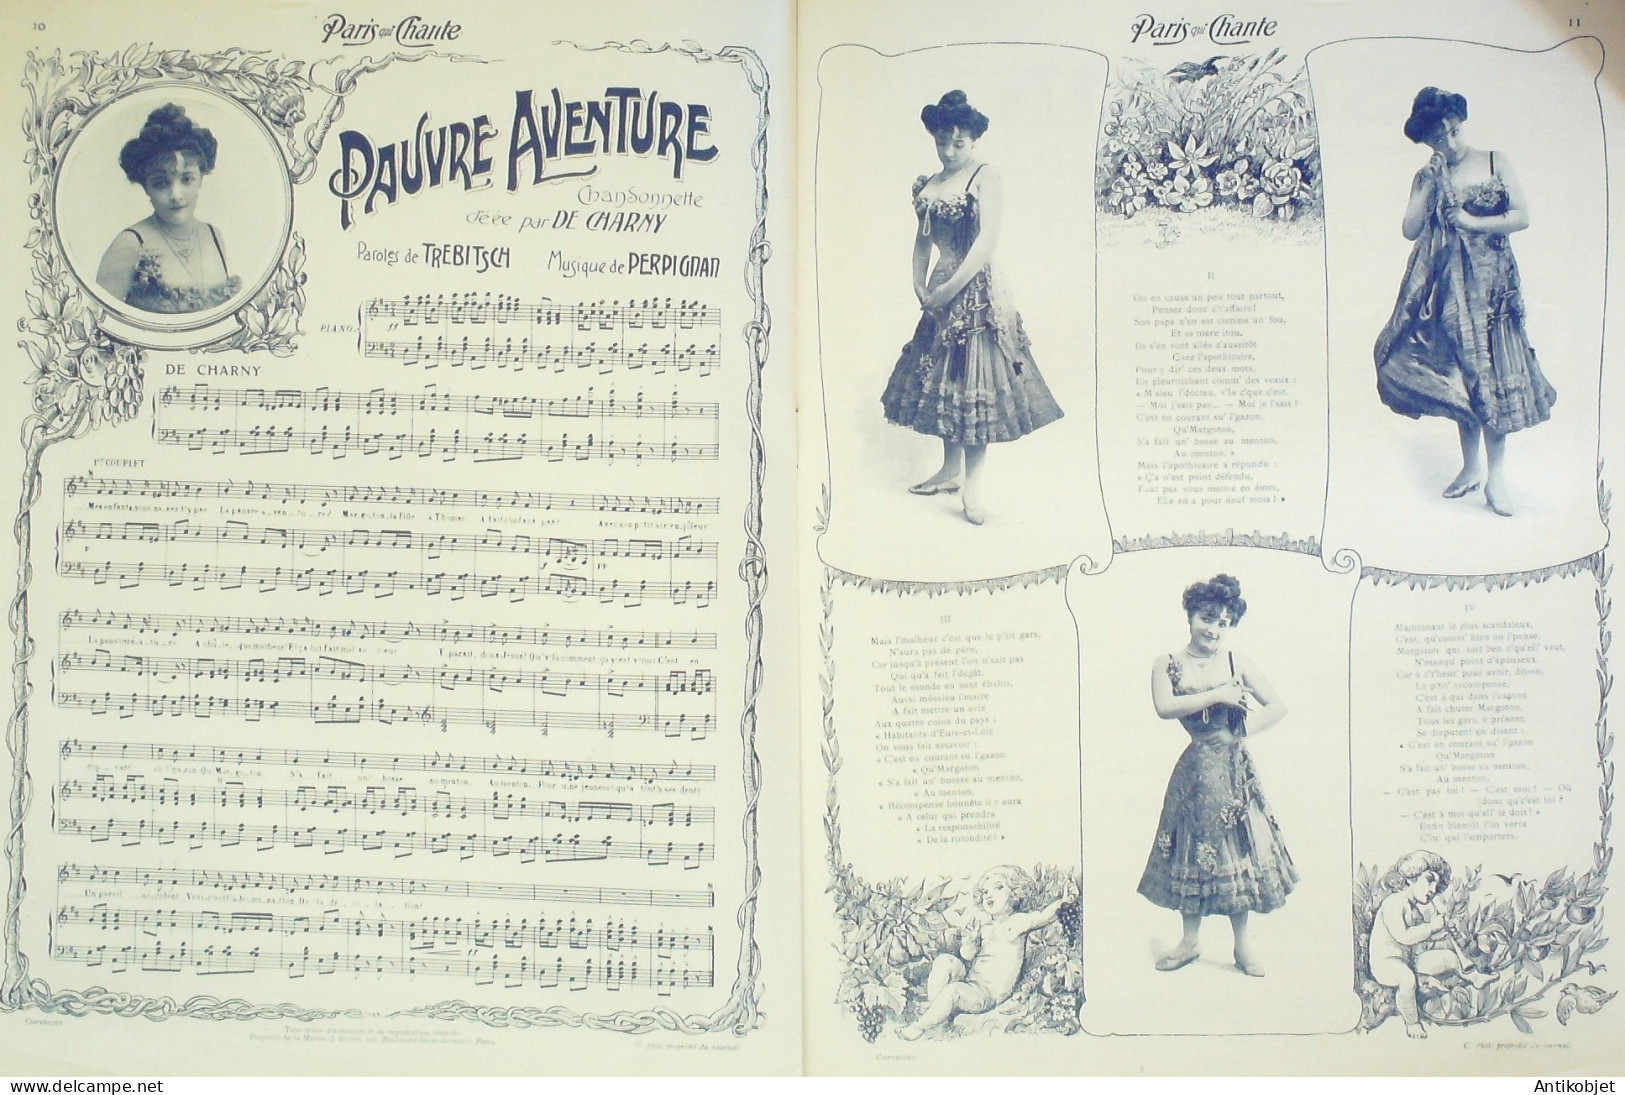 10
Paris qui Chante
PAUVRE AVENTURE
Chansonnette
créée par DE CHARNY
Paroles de TREBITSCH
Musique de PERPIGNAN
PIANO.
DE CHARNY
1er COUPLET
Mes enfants, vous savez t'y pas La pauvre a_ven_tu_re? Mar_go_ton, la fille à Thomas A fait un faux pas? Avec son p'tit air en_jôleur
La pauv' cré_a_tu_re A chû_te, que malheur! Et ça lui fait mal au cœur Y paraît, doux Jésus! Qu' v'là comment ça vient v'nu: C'est en
cou_rant su' l'ga_zon Qu' Mar_go_ton S'a fait un' bosse au menton, Au menton. Pour u_ne jeunesse qu'a tout's ses dents
Un pareil ac_cident Vrai, c'est l'a_bo_mi_na_tion De la dé_so_la_tion!
COPYRIGHT
Tous droits d'exécution et de reproduction réservés.
11
Paris qui Chante
II
On en cause un peu tout partout,
Pensez donc c't'affaire!
Son papa n'en est comme un fou,
Et sa mère itou.
Ils s'en sont allés d'aussitôt
Chez l'apothicaire,
Pour y dir' ces deux mots,
En pleurnichant comm' des veaux :
« M'sieu l'docteu, v'là c'que c'est.
— Moi j'sais pas... — Moi je l'sais!
C'est en courant su' l'gazon,
Qu'Margoton,
S'a fait un' bosse au menton,
Au menton. »
Mais l'apothicaire a répondu :
« Ç'a n'est point défendu,
Faut pas vous mettre en émoi,
Elle en a pour neuf mois! »
III
Mais l'malheur c'est que le p'tit gars,
N'aura pas de père,
Car jusqu'à présent l'on n'sait pas
Qui qu'a fait l'dégât.
Tout le monde en sont ébahis,
Aussi môssieu l'maire
A fait mettre un avis
Aux quatre coins du pays :
« Habitants d'Eure-et-Loir
On vous fait assavoir :
« C'est en courant su' l'gazon
« Qu'Margoton
« S'a fait un' bosse au menton,
« Au menton,
« Récompense honnête il y aura
« A celui qui prendra
« La responsabilité
« De la rotondité! »
IV
Maintenant le plus scandaleux,
C'est, qu'comm' bien on l'pense,
Margoton qui sait ben c'qu'ell' veut,
N'manqu' point d'épouseux.
Car à c't'heur' pour avoir, dit-on,
La p'tit' récompense,
C'est à qui dans l'canton
A fait chuter Margoton.
Tous les gars, à présent,
Se disputent en disant :
« C'est en courant su' l'gazon
Qu'Margoton
S'a fait un' bosse au menton,
Au menton,
— C'est pas toi! — C'est moi! — Où
[donc qu'c'est toi?
— C'est à moi qu'ell' le doit! »
Enfin bientôt l'on verra
C'lui qui l'emportera.
C. phot. propriété du journal.
COPYRIGHT.
C. phot. propriété du journal.
Antikobjet